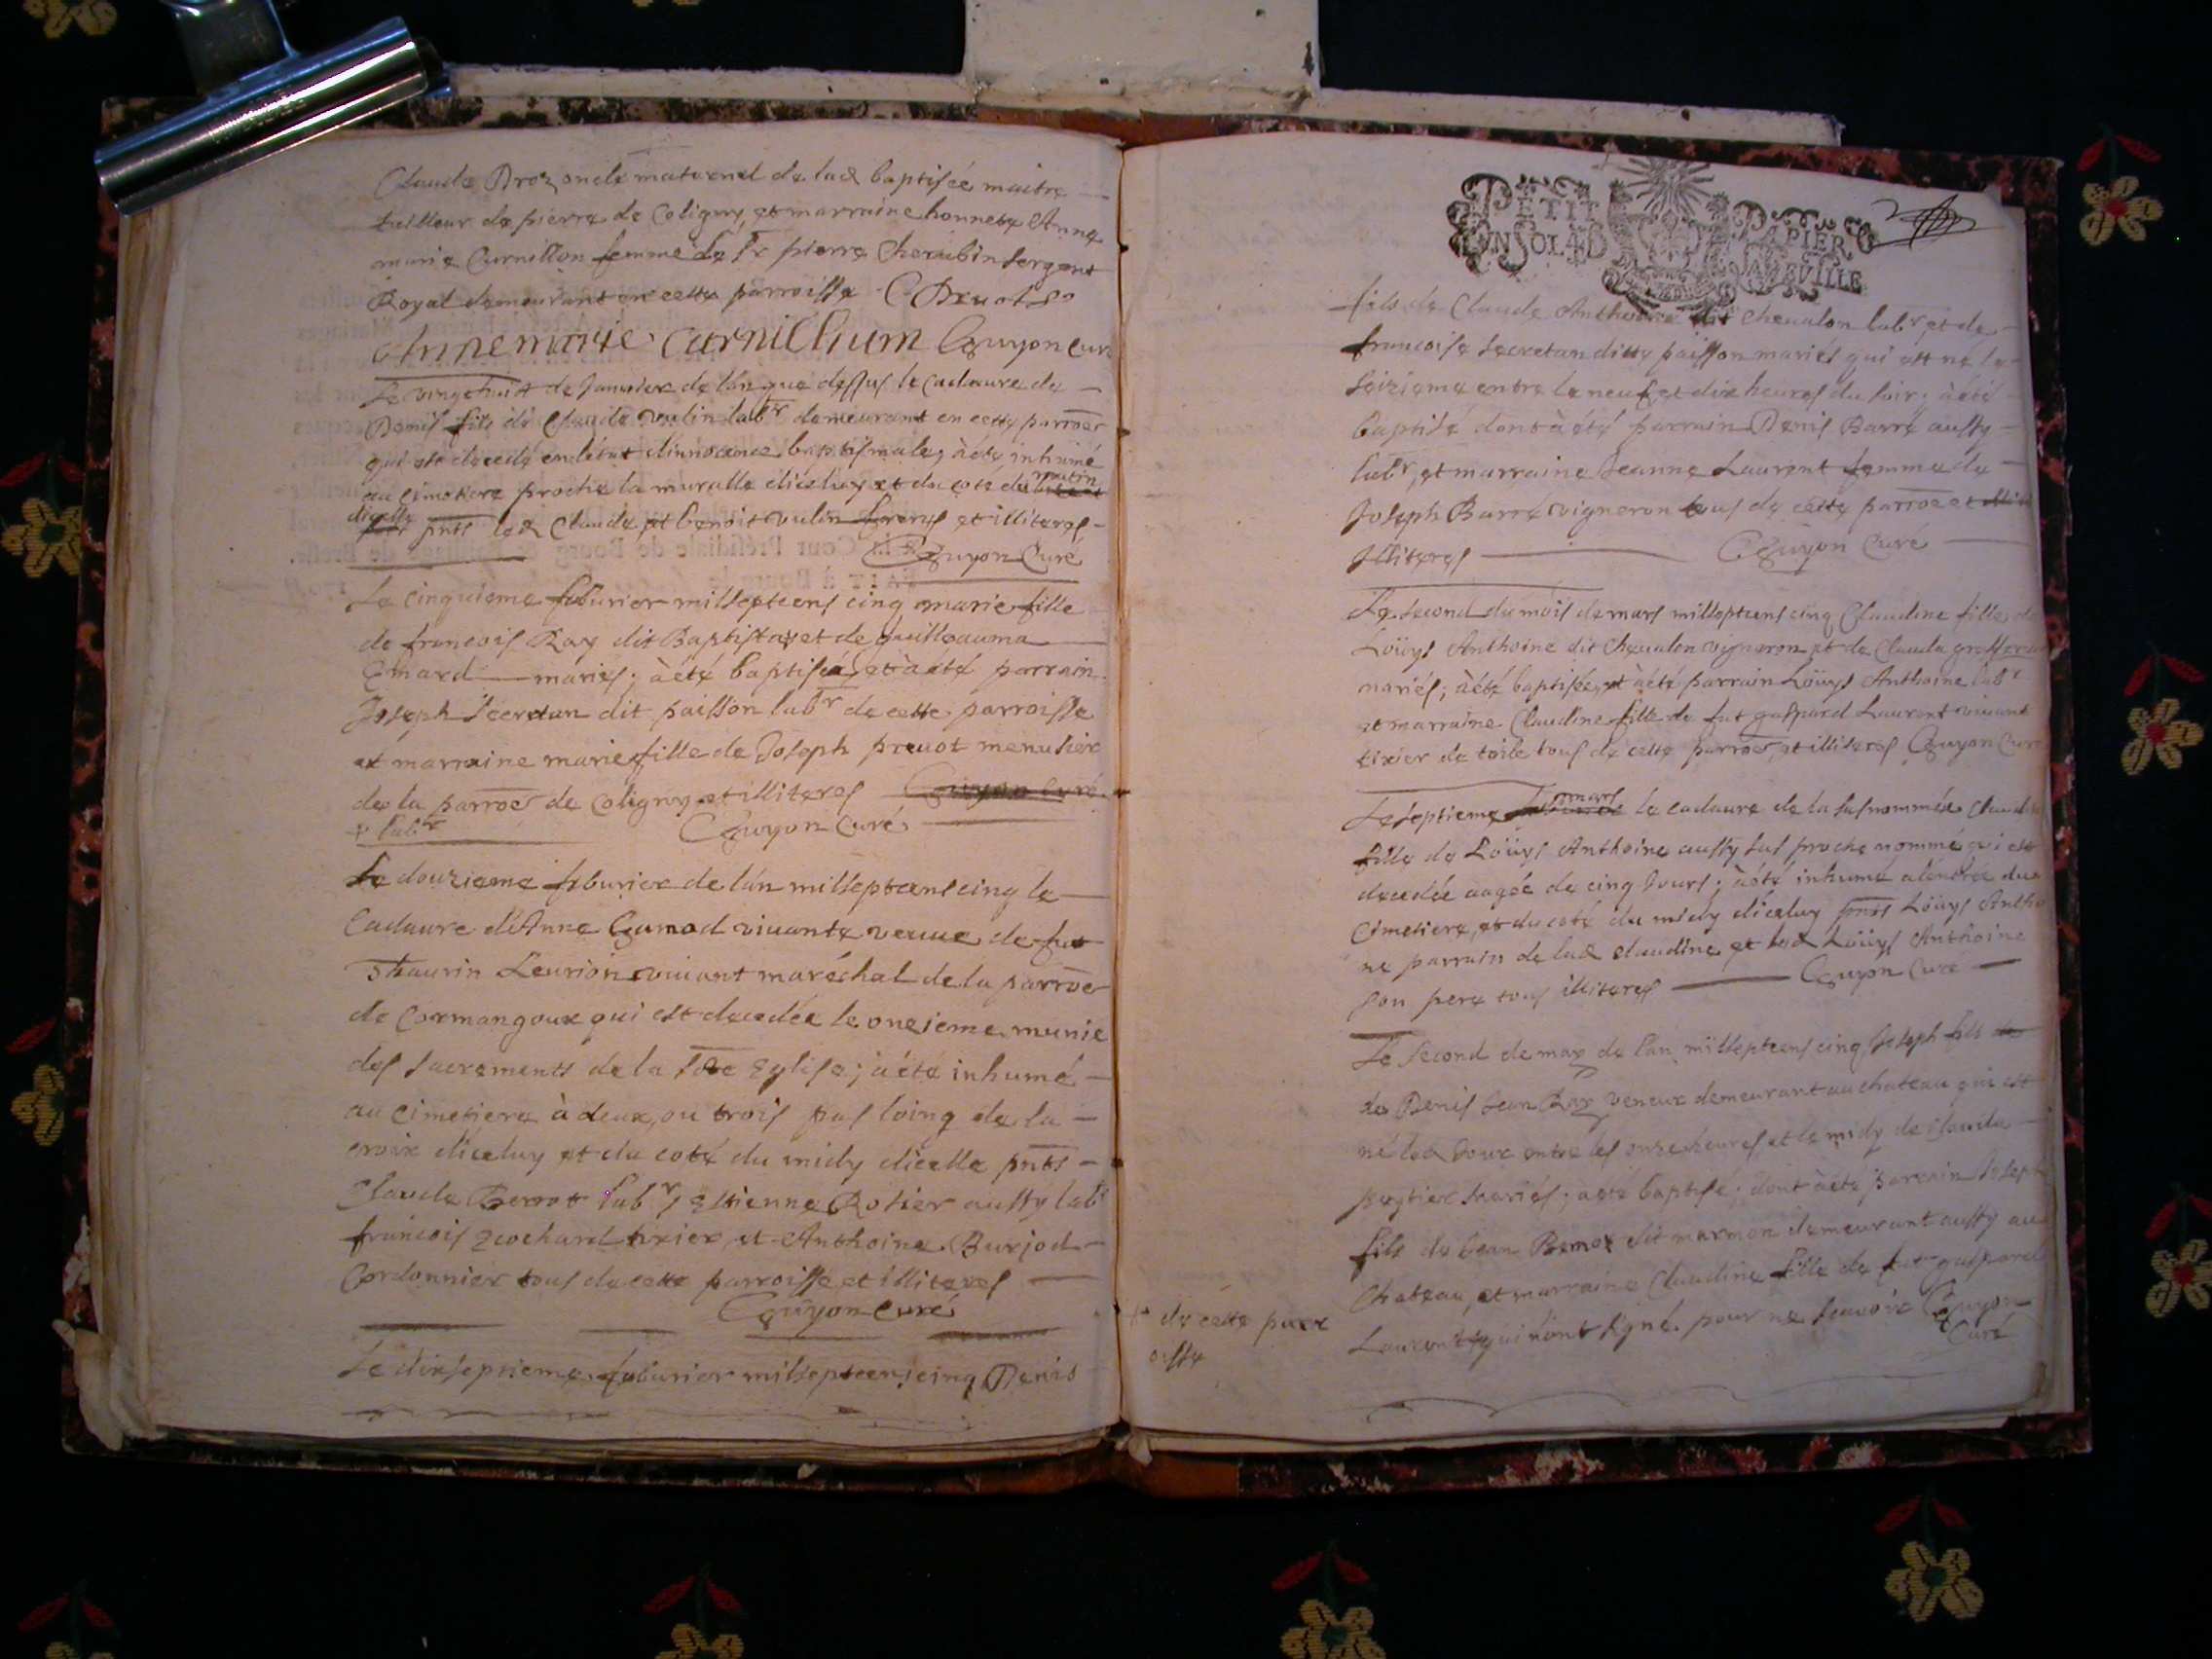 Claude Droz oncle maternel de lad baptisée maitre
tailleur de pierre de Coligny, et marraine honnete Anne
marie Curnillon femme de Sr pierre Cherubin sergent
Royal demeurant en cette parroisse
Anne marie Carnilhum Guyon Curé
Le vingthuit de Janvier de l'an que dessus le cadaure de
Denis fils de Claude vulin labr demeurant en cette parroe
qui est decedé en l'état d'innocence baptismale, àété inhumé
au cimetiere proche la muralle d'iceluy et du coté du matin
d'icelle pnts led Claude et benoit vulin et illiteres
Guyon Curé
Le cinquieme feburier millseptcens cinq marie fille
de francois Ray dit Baptistay et de guilleauma
Emard mariés; àété baptisée, et àété parrain
Joseph Secretan dit paisson labr de cette parroisse
et marraine marie fille de Joseph preuot menusier
de la parroe de Coligny et illiteres Guyon Curé
+ labr Guyon Curé
Le douzieme feburier de l'an millseptcens cinq le
Cadaure d'Anne Gamod viuante veuue de fut
Thaurin Leurion viuant maréchal de la parroe
de Cormangoux qui est decedée le onzieme munie
des sacrements de la Ste Eglise; àété inhumé
au cimetiere à deux, ou trois pas loing de la
croix d'iceluy et du coté du midy d'icelle pnts
Claude Perrot labr, Estienne Rotier aussy labr
francois Zwochard tixier, et Anthoine Burjod
Cordonnier tous de cette parroisse et illiteres
Guyon Curé
Le dixseptieme feburier millseptcens cinq Denis
PETIT PAPIER
UN SOL 4 D LA FEVILLE
fils de Claude Anthoine dit cheualon labr et de
francoise Secretan ditte paisson mariés qui est né le
seizieme entre le neuf et dix heures du soir; àété
baptisé dont àété parrain Denis Barré aussy
labr, et marraine Jeanne Laurent femme de
Joseph Barré vigneron tous de cette parroe et
illiteres Guyon Curé
Le second du mois de mars millseptcens cinq Claudine fille de
Loüys Anthoine dit cheualon vigneron et de Clauda
mariés; àété baptisée, et àété parrain Loüys Anthoine labr
et marraine Claudine fille de fut gaspard Laurent viuant
tixier de toile tous de cette parroe, et illiteres Guyon Curé
Le septieme mars le cadaure de la susnommée Claudine
fille de Loüys Anthoine aussy sus proche nommé qui est
decedée aagée de cinq jours; àété inhumé a l'entrée du
Cimetiere, et du coté du midy d'iceluy pnts Loüys Anthoi
ne parrain de lad claudine et led Loüys Anthoine
son pere tous illiteres Guyon Curé
Le second de may de l'an millseptcens cinq Joseph fils
de Denis Jean Ray veneur demeurant au chateau qui est
né led jour entre les onze heures et le midy de Clauda
peytier mariés; àété baptisé; dont àété parrain Joseph
fils de Jean Remoy dit marmon demeurant aussy au
Chateau, et marraine Claudine fille de fut gaspard
Laurent qui n'ont signé pour ne scavoir Guyon
Curé
+ de cette parr
oisse